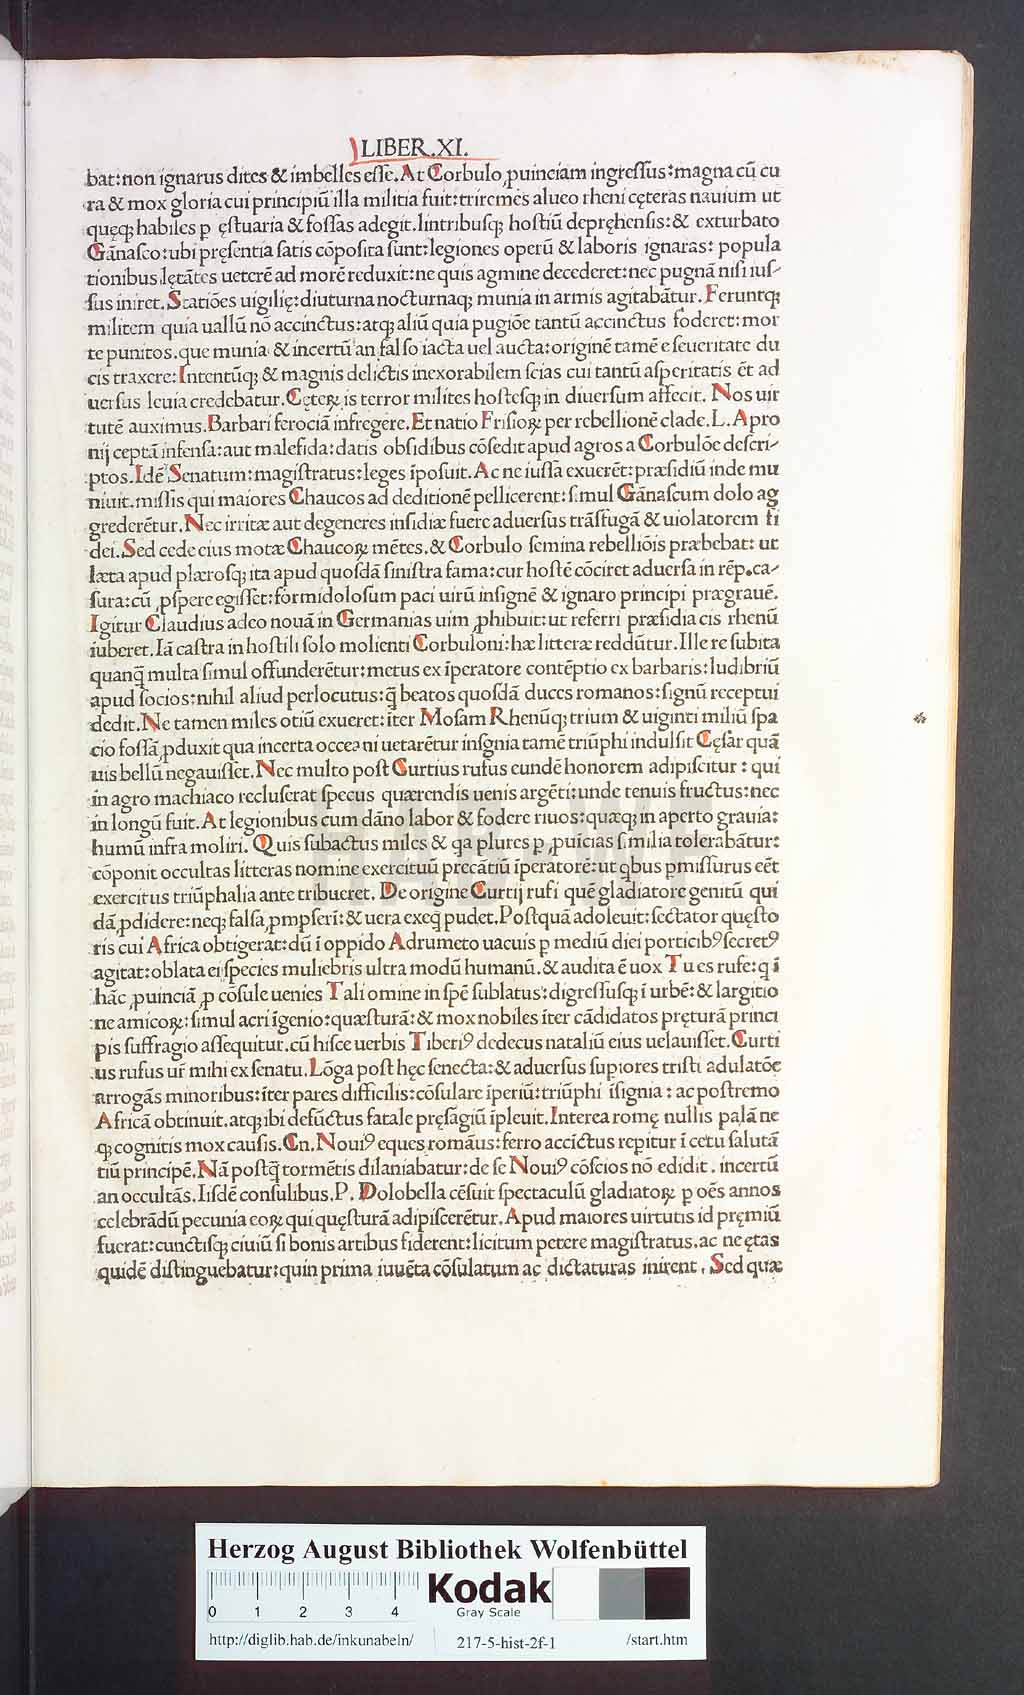 LIBER.XI.
bat:non ignarus dites & imbelles esse.At Corbulo ꝓuinciam ingressus:magna cū cu
ra & mox gloria cui principiū illa militia fuit:triremes alueo rheni cęteras nauium ut
quęqꝫ habiles ꝑ ęstuaria & fossas adegit.lintribusqꝫ hostiū depręhensis:& exturbato
Gānasco:ubi pręsentia satis cōposita sunt:legiones operū & laboris ignaras: popula
tionibus lętātes ueterē ad morē reduxit:ne quis agmine decederet:nec pugnā nisi ius-
sus iniret.Statiōes uigilię:diuturna nocturnaqꝫ munia in armis agitabātur.Feruntqꝫ
militem quia uallū nō accinctus:atqꝫ aliū quia pugiōe tantū accinctus foderet:mor
te punitos.que munia & incertū an falso iacta uel aucta:originē tamē e seueritate du
cis traxere:Intentūqꝫ & magnis delictis inexorabilem scias cui tantū asperitatis ēt ad
uersus leuia credebātur.Cęteꝝ is terror milites hostesqꝫ in diuersum affecit. Nos uir
tutē auximus.Barbari ferociā infregere.Et natio Frisioꝝ per rebellionē clade.L.Apro
nij ceptā infensa:aut malefida:datis obsidibus cōsedit apud agros a Corbulōe descri-
ptos.Idē Senatum:magistratus:leges īposuit.Ac ne iussa exuerēt:præsidiū inde mu
niuit.missis qui maiores Chaucos ad deditionē pellicerent:simul Gānascum dolo ag
grederētur.Nec irritæ aut degeneres insidiæ fuere aduersus trāsfugā & uiolatorem fi
dei.Sed cede eius motæ Chaucoꝝ mētes.& Corbulo semina rebelliōis præbebat: ut
læta apud plærosqꝫ ita apud quosdā sinistra fama:cur hostē cōciret aduersa in rēp.ca-
sura:cū ꝓspere egisset:formidolosum paci uirū insignē & ignaro principi prægrauē.
Igitur Claudius adeo nouā in Germanias uim ꝓhibuit:ut referri præsidia cis rhenū
iuberet.Iā castra in hostili solo molienti Corbuloni:hæ litteræ reddūtur.Ille re subita
quanq̄ multa simul offunderētur:metus ex īperatore contēptio ex barbaris:ludibriū
apud socios:nihil aliud perlocutus:q̄ beatos quosdā duces romanos:signū receptui
dedit.Ne tamen miles otiū exueret:īter Mosam Rhenūqꝫ trium & uiginti miliū spa
cio fossā ꝓduxit qua incerta occeani uetarētur insgnia tamē triūphi indulsit Cęsar quā
uis bellū negauisset.Nec multo post Curtius rufus eundē honorem adipiscitur : qui
in agro machiaco recluserat specus quærendis uenis argēti:unde tenuis fructus:nec
in longū fuit.At legionibus cum dāno labor & fodere riuos:quæqꝫ in aperto grauia:
humū infra moliri. Quis subactus miles & qa plures ꝑ ꝓuīcias similia tolerabātur:
cōponit occultas litteras nomine exercituū precātiū īperatorē:ut qbus ꝑmissurus eēt
exercitus triūphalia ante tribueret. De origine Curtij rufi quē gladiatore genitū qui
dā ꝓdidere:neqꝫ falsa ꝓmpserī:& uera exeq̄ pudet.Postquā adoleuit:sectator quęsto
ris cui Africa obtigerat:dū ī oppido Adrumeto uacuis ꝑ mediū diei porticibꝰ secretꝰ
agitat:oblata ei species muliebris ultra modū humanū.& audita ē uox Tu es rufe:q ī
hāc ꝓuinciā ꝓ cōsule uenies Tali omine in spē sublatus:digressusqꝫ ī urbē:& largitio
ne amicoꝝ:simul acri īgenio:quæsturā:& mox nobiles īter cādidatos pręturā princi
pis suffragio assequitur.cū hisce uerbis Tiberiꝰ dedecus nataliū eius uelauisset.Curti
us rufus ur̄ mihi ex senatu.Lōga post hęc senecta:& aduersus supiores tristi adulatōe
arrogās minoribus:īter pares difficilis:cōsulare īperiū:triūphi īsignia : ac postremo
Africā obtinuit.atqꝫ ibi defūctus fatale pręsagiū īpleuit.Interea romę nullis palā ne
qꝫ cognitis mox causis.Cn.Nouiꝰ eques romāus:ferro accīctus repitur ī cetu salutā
tiū principē.Nā postq̄ tormētis dilaniabatur:de se Nouiꝰ cōscios nō edidit . incertū
an occultās.Iisdē consulibus.P. Dolobella cēsuit spectaculū gladiatoꝝ ꝑ oēs annos
celebrādū pecunia eoꝝ qui quęsturā adipiscerētur.Apud maiores uirtutis id pręmiū
fuerat:cunctisqꝫ ciuiū si bonis artibus fiderent:licitum petere magistratus.ac ne ętas
quidē distinguebatur:quin prima iuuēta cōsulatum ac dictaturas inirent . Sed quæ
HAB WF
Herzog August Bibliothek Wolfenbüttel
0 1 2 3 4
Kodak
Gray Scale
http://diglib.hab.de/inkunabeln/ 217-5-hist-2f-1 /start.htm